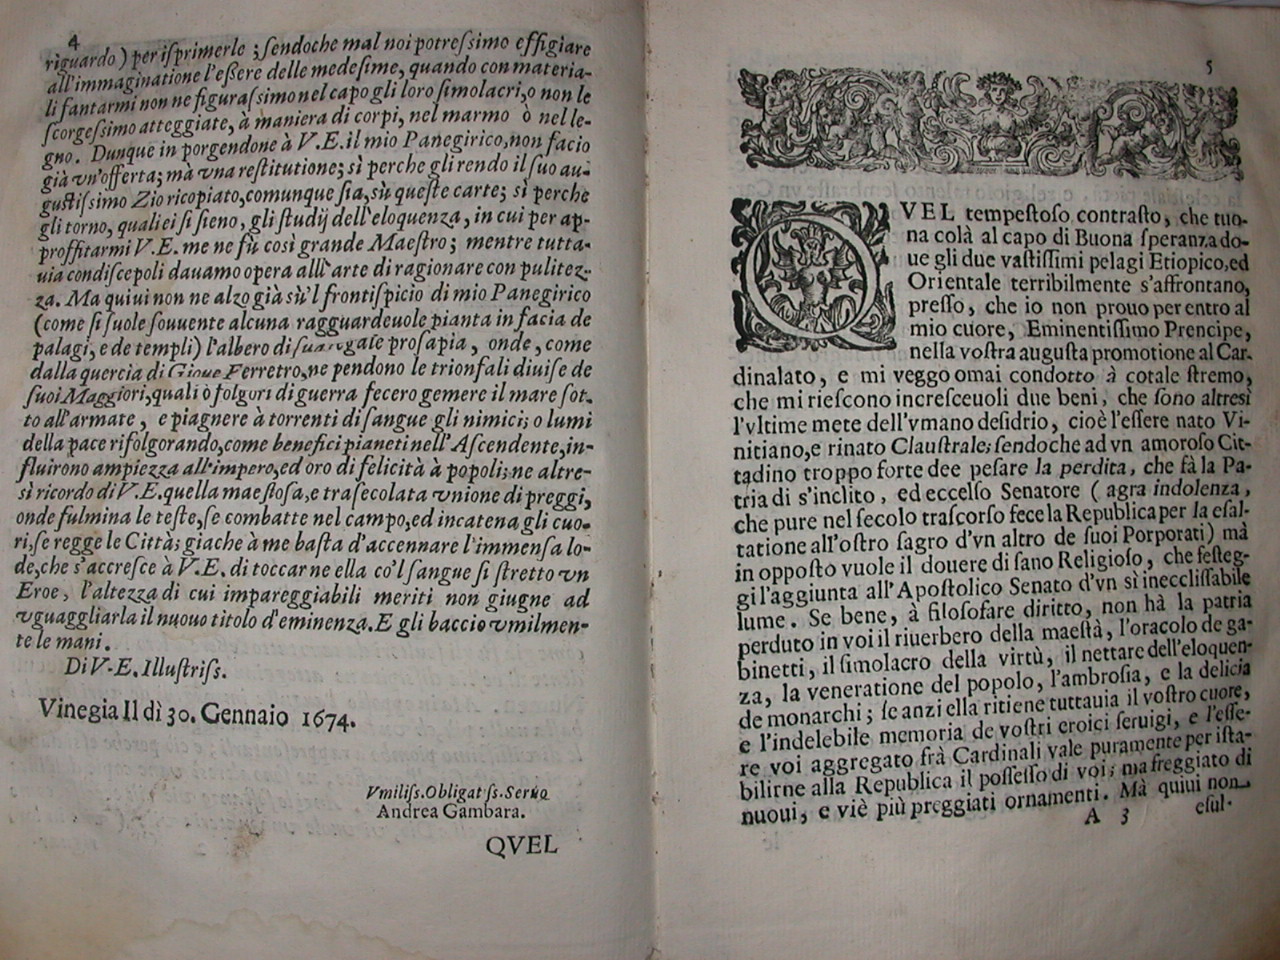 4
riguardo) per iſprimerle ; ſendoche mal noi potreſsimo effigiare
all'immaginatione l'eßere delle medeſime, quando con materia-
li fantarmi non ne figuraſsimo nel capo gli loro ſimolacri, o non le
ſcorgeſsimo atteggiate, à maniera di corpi, nel marmo ò nel le-
gno. Dunque in porgendone à V.E. il mio Panegirico, non facio
già vn'offerta; mà vna reſtitutione; sì perche gli rendo il ſuo au-
guſtiſsimo Zio ricopiato, comunque ſia, sù queſte carte; sì perche
gli torno, quali ei ſi ſieno, gli ſtudij dell'eloquenza, in cui per ap-
proffitarmi V.E. me ne fù così grande Maeſtro; mentre tutta-
uia condiſcepoli dauamo opera all'arte di ragionare con pulitez-
za. Ma quiui non ne alzo già sù'l frontiſpicio di mio Panegirico
(come ſi ſuole ſouuente alcuna ragguardeuole pianta in facia de
palagi, e de templi) l'albero di proſapia, onde, come
dalla quercia di Gioue Ferretro, ne pendono le trionfali diuiſe de
ſuoi Maggiori, quali ò folgori di guerra fecero gemere il mare ſot-
to all'armate, e piagnere à torrenti di ſangue gli nimici; o lumi
della pace rifolgorando, come benefici pianeti nell'Aſcendente, in-
fluirono ampiezza all'impero, ed oro di felicità à popoli; ne altre-
sì ricordo di V.E. quella maeſtoſa, e traſecolata vnione di preggi,
onde fulmina le teſte, ſe combatte nel campo, ed incatena gli cuo-
ri, ſe regge le Città; giache à me baſta d'accennare l'immenſa lo-
de, che s'accreſce à V.E. di toccarne ella co'l ſangue ſi ſtretto vn
Eroe, l'altezza di cui impareggiabili meriti non giugne ad
vguaggliarla il nuouo titolo d'eminenza. E gli baccio vmilmen-
te le mani.
Di V.E. Illuſtriſs.
Vinegia Il dì 30. Gennaio 1674.
Vmiliſs. Obligatiſs. Seruo
Andrea Gambara.
QVEL
5
QVEL tempeſtoſo contraſto, che tuo-
na colà al capo di Buona ſperanza do-
ue gli due vaſtiſſimi pelagi Etiopico, ed
Orientale terribilmente s'affrontano,
preſſo, che io non prouo per entro al
mio cuore, Eminentiſſimo Prencipe,
nella voſtra auguſta promotione al Car-
dinalato, e mi veggo omai condotto à cotale ſtremo,
che mi rieſcono increſceuoli due beni, che ſono altresì
l'vltime mete dell'vmano deſidrio, cioè l'eſſere nato Vi-
nitiano, e rinato Clauſtrale; ſendoche ad vn amoroſo Cit-
tadino troppo forte dee peſare la perdita, che fà la Pa-
tria di s'inclito, ed eccelſo Senatore ( agra indolenza,
che pure nel ſecolo traſcorſo fece la Republica per la eſal-
tatione all'oſtro ſagro d'vn altro de ſuoi Porporati) mà
in oppoſto vuole il douere di ſano Religioſo, che feſteg-
gi l'aggiunta all'Apoſtolico Senato d'vn sì ineccliſſabile
lume. Se bene, à filoſofare diritto, non hà la patria
perduto in voi il riuerbero della maeſtà, l'oracolo de ga-
binetti, il ſimolacro della virtù, il nettare dell'eloquen-
za, la veneratione del popolo, l'ambroſia, e la delicia
de monarchi; ſe anzi ella ritiene tuttauia il voſtro cuore,
e l'indelebile memoria de voſtri eroici ſeruigi, e l'eſſe-
re voi aggregato frà Cardinali vale puramente per iſta-
bilirne alla Republica il poſſeſſo di voi; ma freggiato di
nuoui, e viè più preggiati ornamenti. Mà quiui non
A 3
eſul-